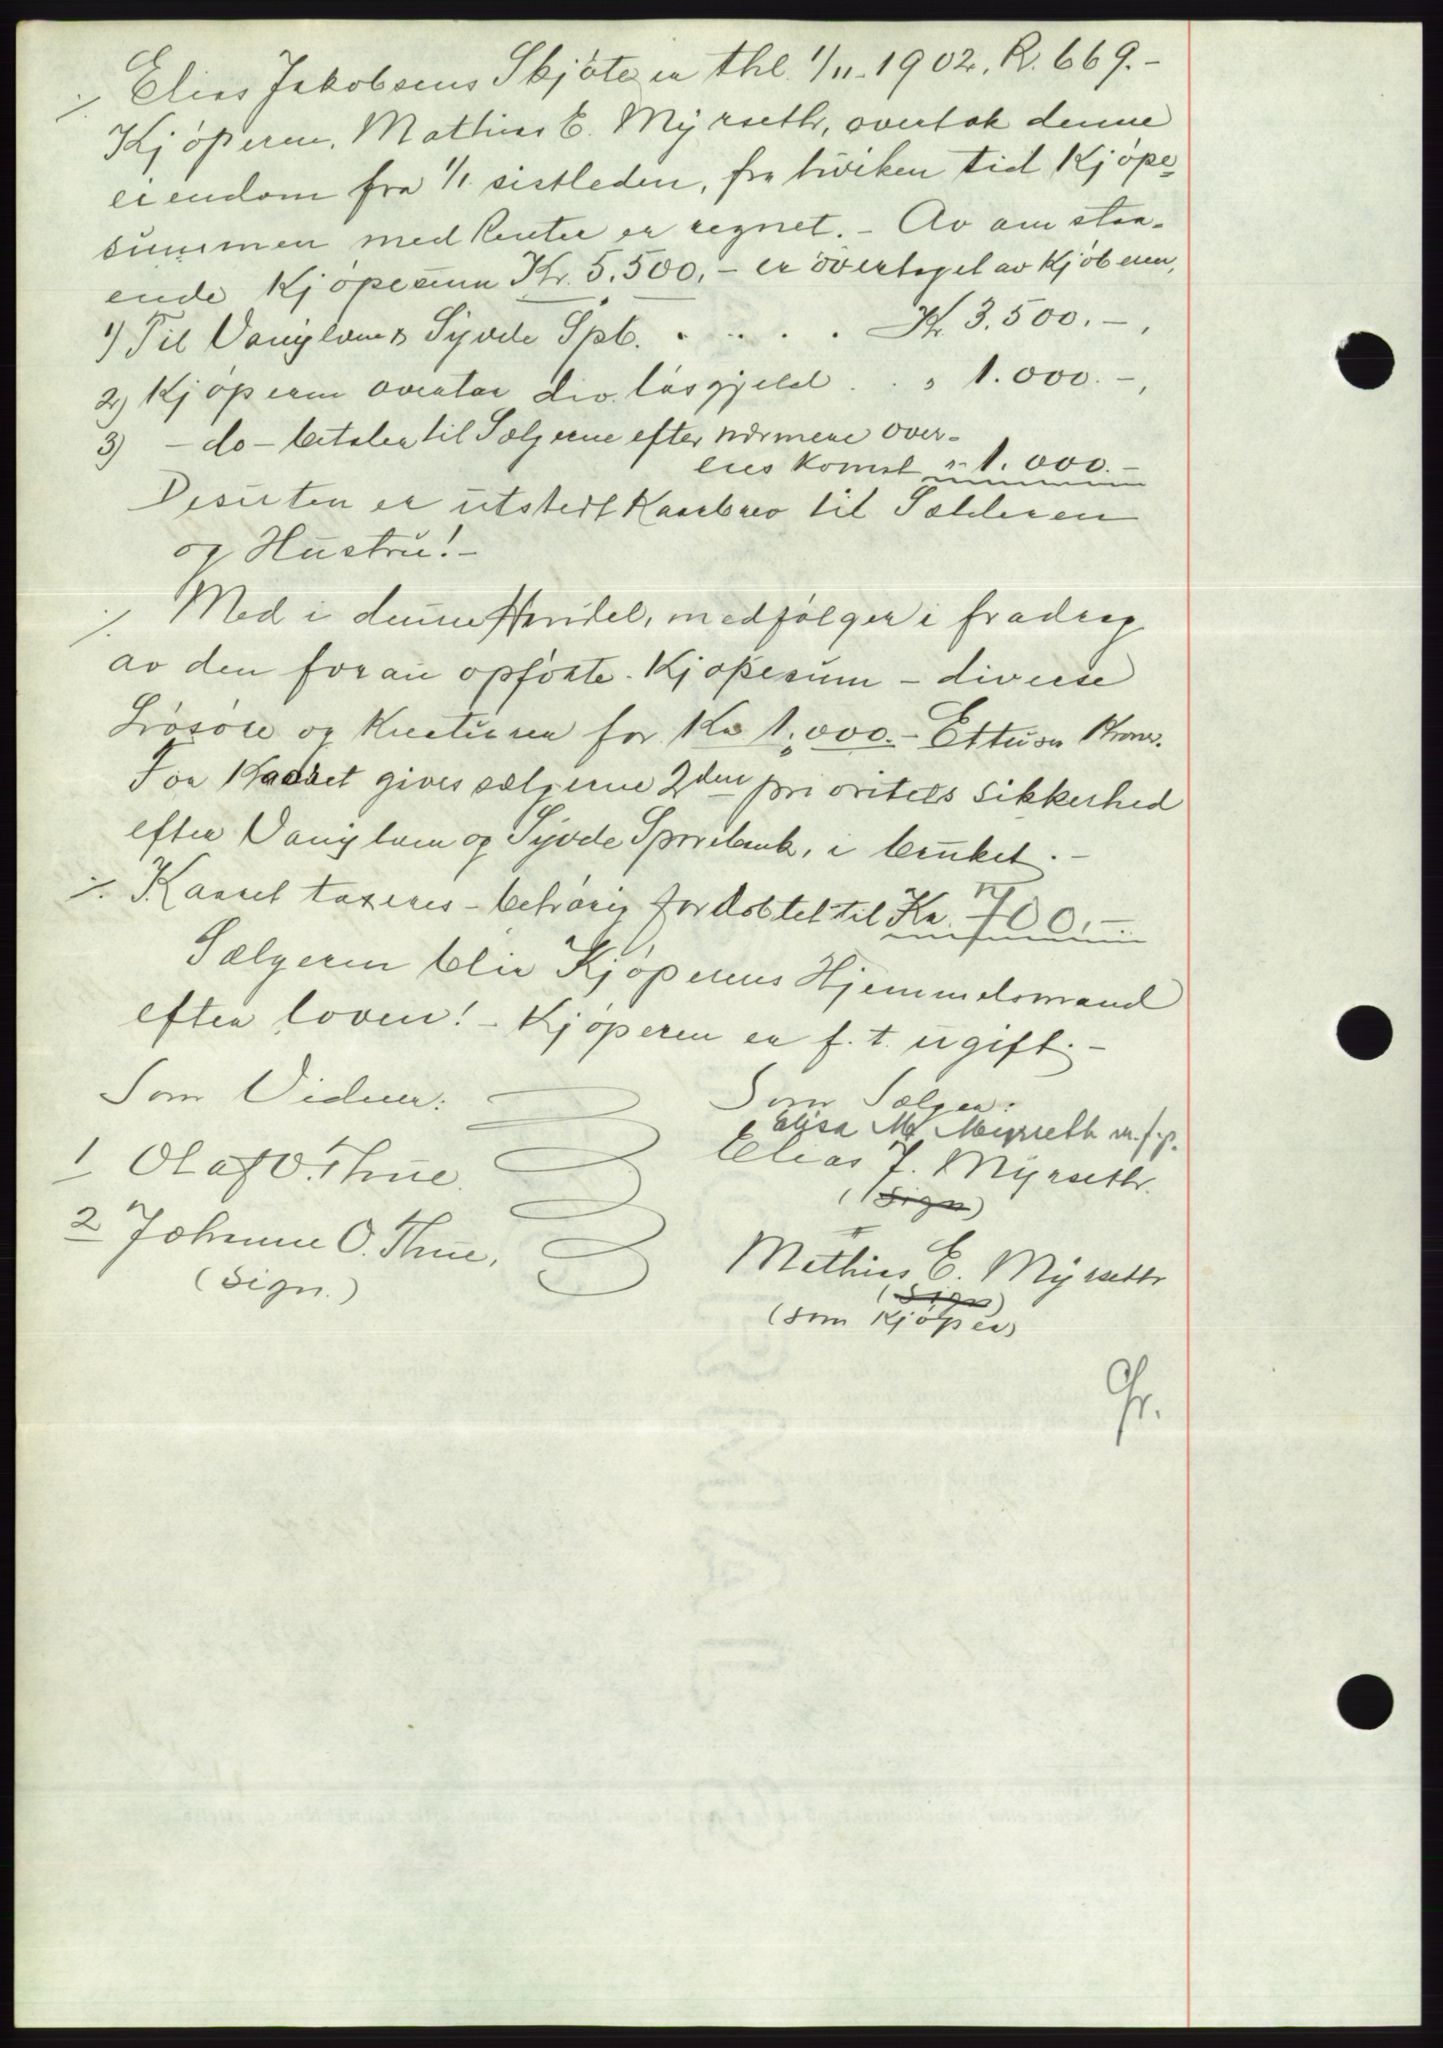 ·/. Elias Jakobsens Skjøte er thl. 1/11-1902. R. 669.-
Kjøperen, Mathias E. Myrseth, overtok denne
eiendom fra 1/1. sistleden, fra hviken tid Kjøpe-
summen med Renter er regnet. - Av om staa-
ende Kjøpesum Kr. 5.500,- er overtaget av Kjøberen,
1) Til Vanylven & Syvde Spb. . . . . Kr. 3.500.-,
2) Kjøperen overtar div. løsgjeld . . " 1.000.-,
3) - do - betaler til Sælgerne efter nærmere over-
ens komst " 1.000.-
Desuten er utstedt Kaarbrev til Sælderen
og Hustru! -
·/. Med i denne Handel, medfølger i fradrag
av den foran opførte Kjøpesum - diverse
Løsøre og Kreaturer for Kr 1.000.- Ettusen Kroner.
For Kaaret gives sælgerne 2den prioritets sikkerhed
efter Vanylven og Syvde Sparebank, i bruket. -
·/. Kaaret taxeres - behørig fordobtet til Kr. 700,-
Sælgeren blir Kjøperens Hjemmelsmand
efter loven! - Kjøperen er f. t. ugift. -
Som Vidner:
Som Sælger:
Elisa M Myrseth m. f. p.
1 Olaf O. Thue.
Elias J. Myrseth.
(Sign)
2 Johanne O. Thue,
(Sign.)
Mathias E. Myrseth
(Sign)
(som Kjøper)
Gr.